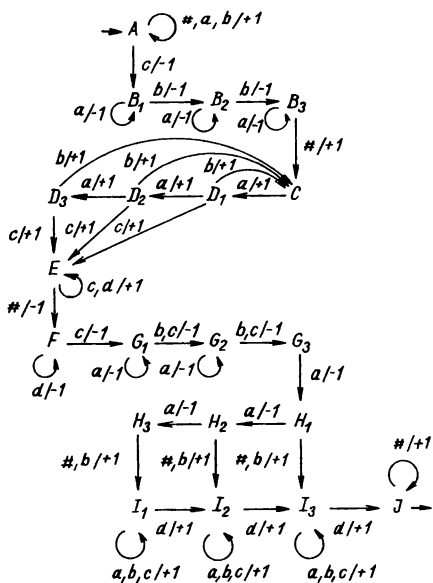 A #, a, b/+1
c/-1
B1 b/-1 B2 b/-1 B3
a/-1 a/-1 a/-1
#/+1
b/+1 b/+1 b/+1
D3 a/+1 D2 a/+1 D1 a/+1 C
c/+1 c/+1 c/+1
E
c, d/+1
#/-1
F c/-1 G1 b,c/-1 G2 b,c/-1 G3
d/-1 a/-1 a/-1
a/-1
H3 a/-1 H2 a/-1 H1
#/+1
#, b/+1 #, b/+1 #, b/+1
I1 d/+1 I2 d/+1 I3 d/+1 J
a, b, c/+1 a, b, c/+1 a, b, c/+1